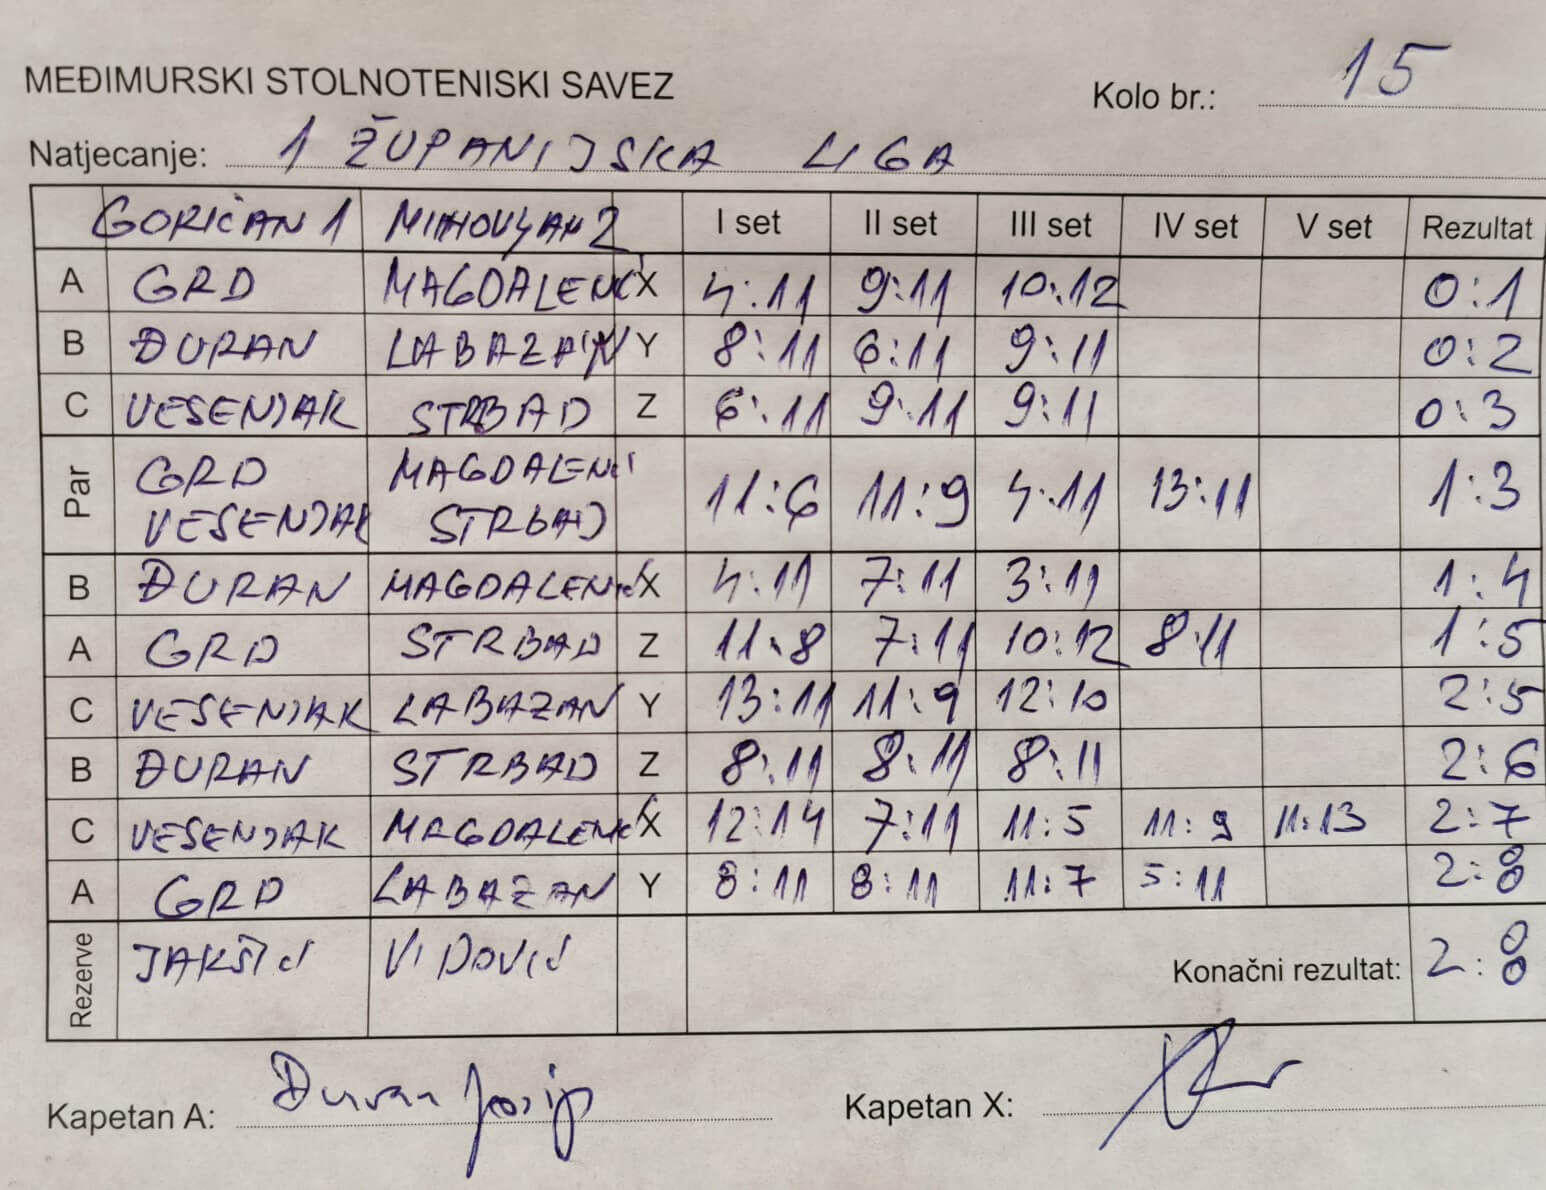 MEĐIMURSKI STOLNOTENISKI SAVEZ
Kolo br.: 15
Natjecanje: 1 ŽUPANIJSKA LIGA
GORIČAN 1 MIHOVLJAN 2 I set II set III set IV set V set Rezultat
A GRD MAGDALENIĆ X 4:11 9:11 10:12 0:1
B ĐURAN LABAZAN Y 8:11 6:11 9:11 0:2
C VESENJAK STRBAD Z 6:11 9:11 9:11 0:3
Par GRD VESENJAK MAGDALENIĆ STRBAD 11:6 11:9 4:11 13:11 1:3
B ĐURAN MAGDALENIĆ X 4:11 7:11 3:11 1:4
A GRD STRBAD Z 11:8 7:11 10:12 8:11 1:5
C VESENJAK LABAZAN Y 13:11 11:9 12:10 2:5
B ĐURAN STRBAD Z 8:11 8:11 8:11 2:6
C VESENJAK MAGDALENIĆ X 12:14 7:11 11:5 11:9 11:13 2:7
A GRD LABAZAN Y 8:11 8:11 11:7 5:11 2:8
Rezerve JAKŠIĆ VIDOVIĆ Konačni rezultat: 2:8
Kapetan A: Đuran Josip Kapetan X: